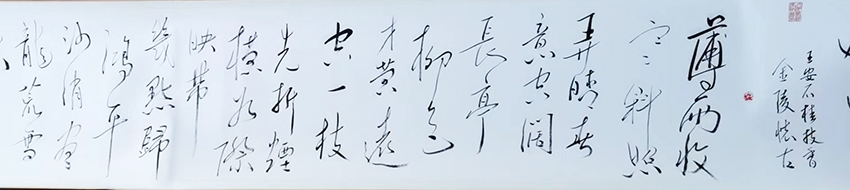 王安石桂枝香
金陵懷古
薄雨收
寒斜照
弄晴春
意空闊
長亭
柳色
才黄遠
客一枝
先折煙
橫水際
映带
幾點歸
鴻平
沙消盡
龍荒雪